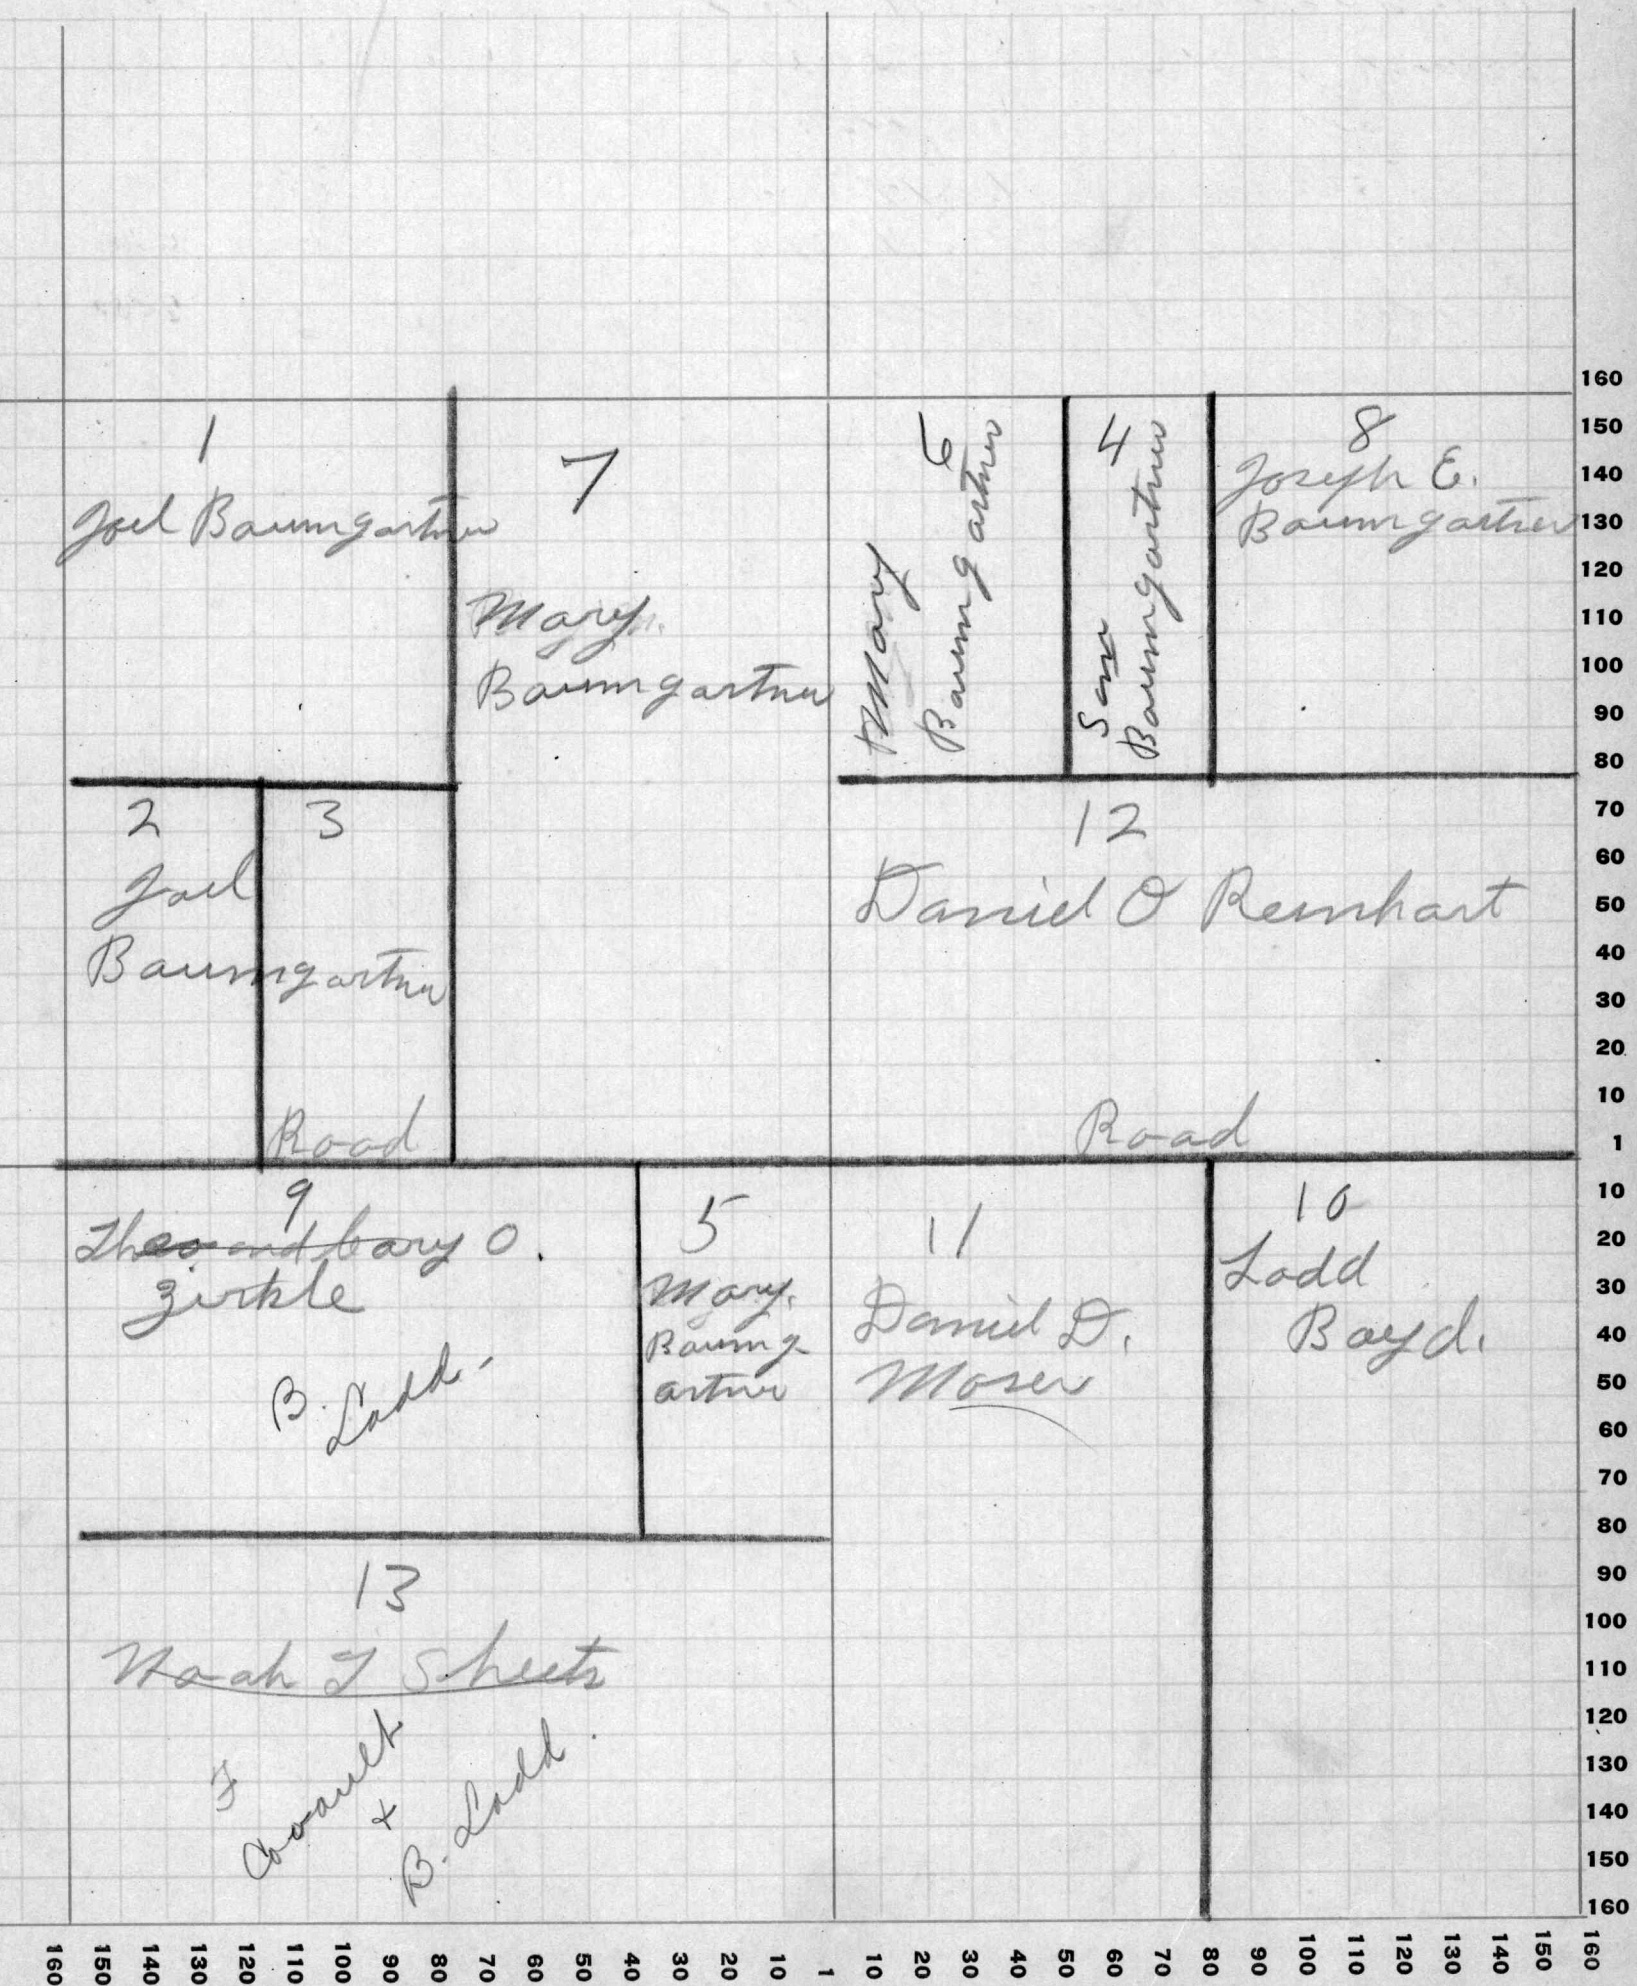 1
Joel Baumgartner
7
Mary
Baumgartner
6
Mary
Baumgartner
4
Sam
Baumgartner
8
Joseph E.
Baumgartner
2
3
Joel
Baumgartner
Road
12
Daniel O Reinhart
Road
9
Theo and Cary O.
Zirkle
B. Ladd
5
Mary
Baumg-
artner
11
Daniel D.
Moser
10
Ladd
Boyd.
13
Noah T Sheets
F
Covault
+
B. Ladd.
160
150
140
130
120
110
100
90
80
70
60
50
40
30
20
10
1
10
20
30
40
50
60
70
80
90
100
110
120
130
140
150
160
160 150 140 130 120 110 100 90 80 70 60 50 40 30 20 10 1 10 20 30 40 50 60 70 80 90 100 110 120 130 140 150 160